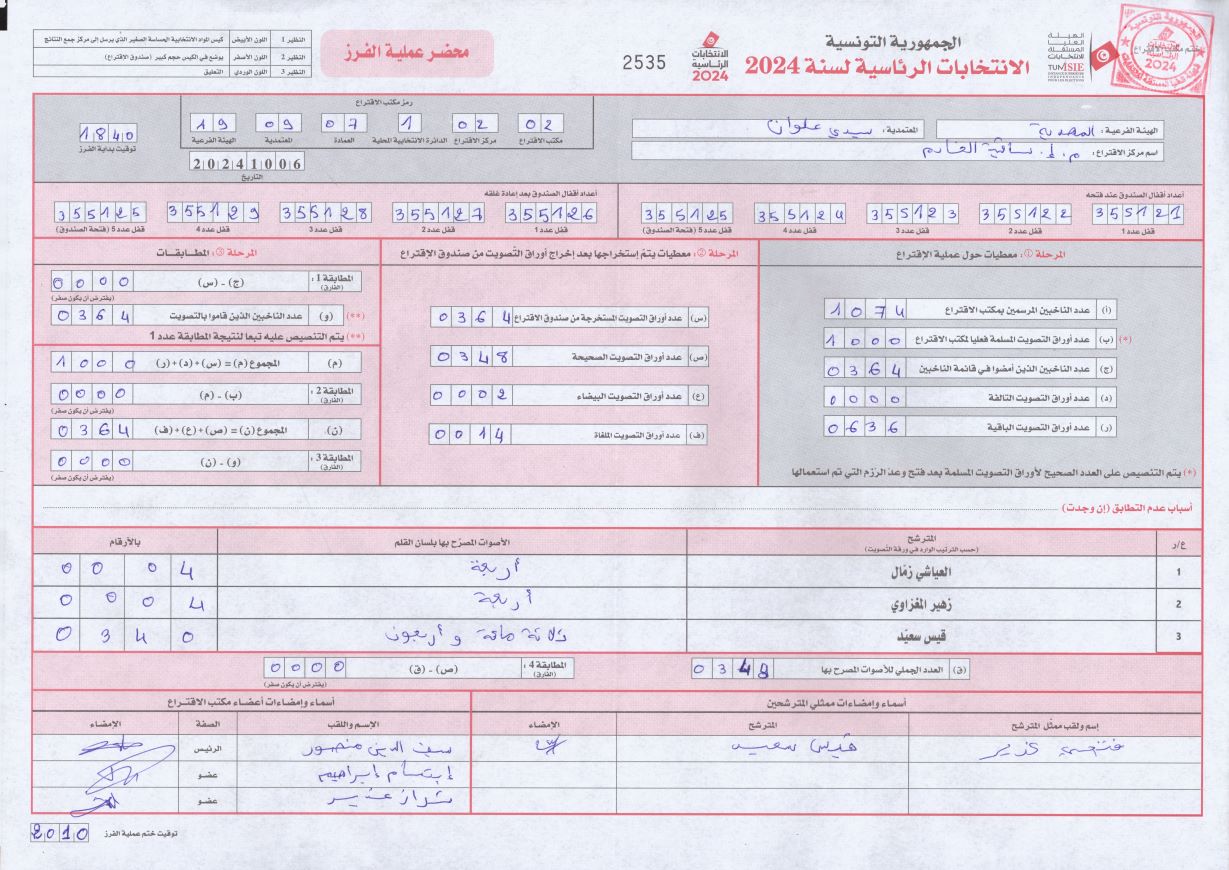 الجمهورية التونسية
الانتخابات الرئاسية لسنة 2024
الهيئة العليا المستقلة للانتخابات
TUNISIE
الانتخابات الرئاسية 2024
2535
محضر عملية الفرز
النظير 1 اللون الأبيض كيس المواد الانتخابية الحساسة الصغير الذي يرسل إلى مركز جمع النتائج
النظير 2 اللون الأصفر يوضع في الكيس حجم كبير (صندوق الاقتراع)
النظير 3 اللون الوردي التعليق
ختم مكتب الاقتراع
الجمهورية التونسية
2024
الهيئة الفرعية: المهدية
المعتمدية: سيدي علوان
اسم مركز الاقتراع: م.إ. ساقية الخادم
رمز مكتب الاقتراع
02 02 1 07 09 19
مكتب الاقتراع مركز الاقتراع الدائرة الانتخابية المحلية العمادة المعتمدية الهيئة الفرعية
20241006
التاريخ
1840
توقيت بداية الفرز
أعداد أقفال الصندوق عند فتحه
355121 355122 355123 355124 355125
قفل عدد 1 قفل عدد 2 قفل عدد 3 قفل عدد 4 قفل عدد 5 (فتحة الصندوق)
أعداد أقفال الصندوق بعد إعادة غلقه
355126 355127 355128 355129 355125
قفل عدد 1 قفل عدد 2 قفل عدد 3 قفل عدد 4 قفل عدد 5 (فتحة الصندوق)
المرحلة ①: معطيات حول عملية الإقتراع
(أ) عدد الناخبين المرسمين بمكتب الاقتراع 1074
(*) (ب) عدد أوراق التصويت المسلمة فعليا لمكتب الاقتراع 1000
(ج) عدد الناخبين الذين أمضوا في قائمة الناخبين 0364
(د) عدد أوراق التصويت التالفة 0000
(ر) عدد أوراق التصويت الباقية 0636
(*) يتم التنصيص على العدد الصحيح لأوراق التصويت المسلمة بعد فتح وعد الرزم التي تم استعمالها
المرحلة ②: معطيات يتم إستخراجها بعد إخراج أوراق التصويت من صندوق الإقتراع
(س) عدد أوراق التصويت المستخرجة من صندوق الاقتراع 0364
(ص) عدد أوراق التصويت الصحيحة 0348
(ع) عدد أوراق التصويت البيضاء 0002
(ف) عدد أوراق التصويت الملغاة 0014
المرحلة ③: المطابقات
المطابقة 1: (الفارق) (ج) - (س) 0000
(يفترض أن يكون صفر)
(**) (و) عدد الناخبين الذين قاموا بالتصويت 0364
(**) يتم التنصيص عليه تبعا لنتيجة المطابقة عدد 1
(م) المجموع (م) = (س) + (د) + (ر) 1000
المطابقة 2: (الفارق) (ب) - (م) 0000
(يفترض أن يكون صفر)
(ن) المجموع (ن) = (ص) + (ع) + (ف) 0364
المطابقة 3: (الفارق) (و) - (ن) 0000
(يفترض أن يكون صفر)
أسباب عدم التطابق (إن وجدت)
ع/ر المترشح (حسب الترتيب الوارد في ورقة التصويت) الأصوات المصرّح بها بلسان القلم بالأرقام
1 العياشي زمّال أربعة 0004
2 زهير المغزاوي أربعة 0004
3 قيس سعيّد ثلاثة مائة و أربعون 0340
(ق) العدد الجملي للأصوات المصرح بها 0348
المطابقة 4: (الفارق) (ص) - (ق) 0000
(يفترض أن يكون صفر)
أسماء وإمضاءات ممثلي المترشحين
إسم ولقب ممثل المترشح المترشح الإمضاء
قيس سعيد
أسماء وإمضاءات أعضاء مكتب الاقتراع
الاسم واللقب الصفة الإمضاء
سيف الدين منصور الرئيس
إبتسام إبراهيم عضو
عضو
توقيت ختم عملية الفرز 2010